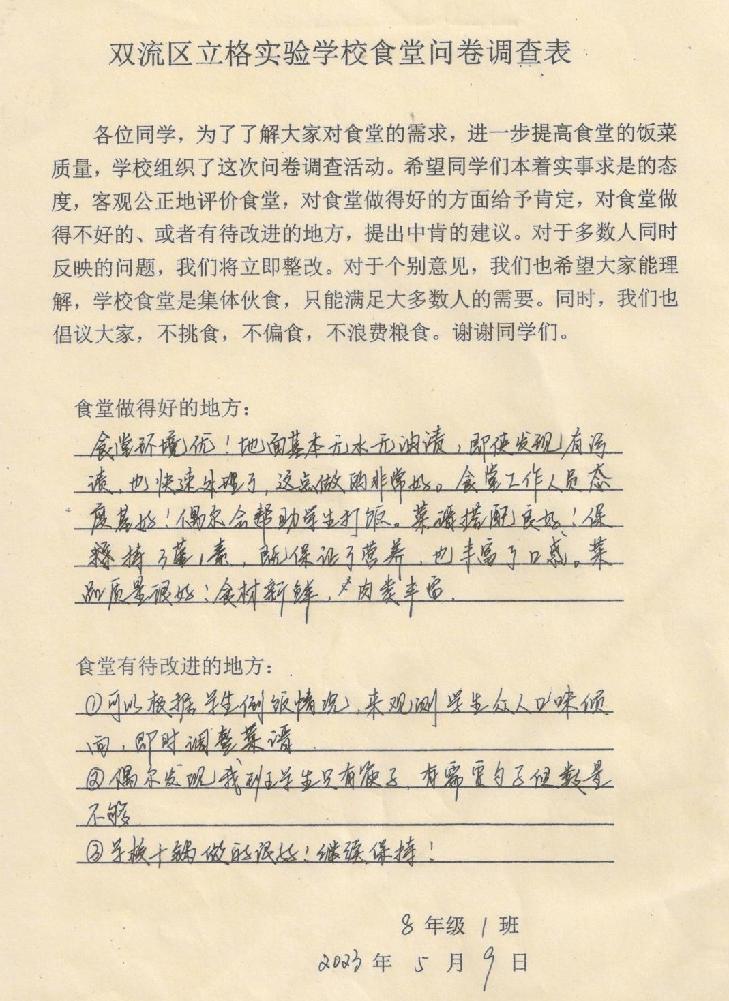 双流区立格实验学校食堂问卷调查表
各位同学，为了了解大家对食堂的需求，进一步提高食堂的饭菜
质量，学校组织了这次问卷调查活动。希望同学们本着实事求是的态
度，客观公正地评价食堂，对食堂做得好的方面给予肯定，对食堂做
得不好的、或者有待改进的地方，提出中肯的建议。对于多数人同时
反映的问题，我们将立即整改。对于个别意见，我们也希望大家能理
解，学校食堂是集体伙食，只能满足大多数人的需要。同时，我们也
倡议大家，不挑食，不偏食，不浪费粮食。谢谢同学们。
食堂做得好的地方：
食堂环境优！地面基本无水无油渍，即使发现有污
渍，也快速处理了，这点做的非常好。食堂工作人员态
度甚好！偶尔会帮助学生打饭。菜谱搭配良好！保
持了荤、素，既保证了营养，也丰富了口感。菜
品质量很好：食材新鲜，肉类丰富.
食堂有待改进的地方：
①可以根据学生倒饭情况，来观测学生众人口味倾
向，即时调整菜谱.
②偶尔发现我班学生只有筷子，有需要勺子但数量
不够.
③学校做的很好！继续保持！
8年级1班
2023年5月9日